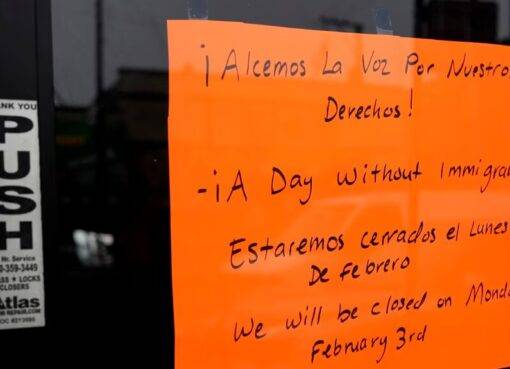 ANK YOU
PUSH
Hr. Service
0-359-3449
SS ★ LOCKS
CLOSERS
Atlas
¡Alcemos La Voz Por Nuestro
Derechos!
-¡A Day without Immigra
Estaremos cerrados el Lunes
De febrero
We will be closed on Monda
February 3rd